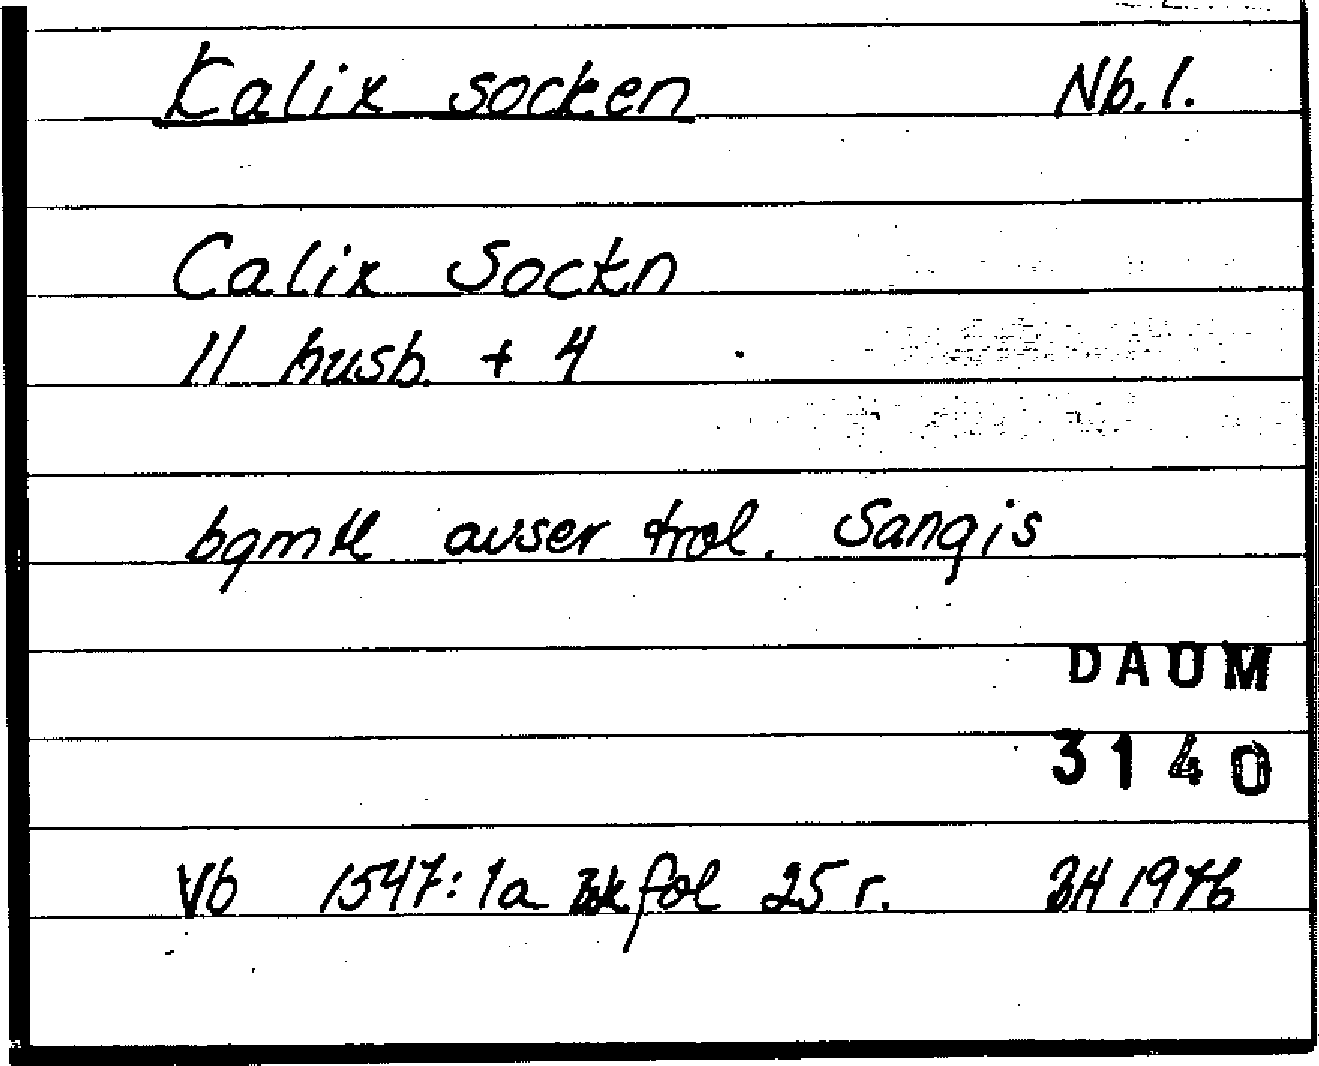 Kalix socken Nb. l.
Calix Sockn
11 husb. + 4
bgmtl avser trol. Sangis
DAUM
3140
Vb 1547: 1a fol 25 r. BH 1976